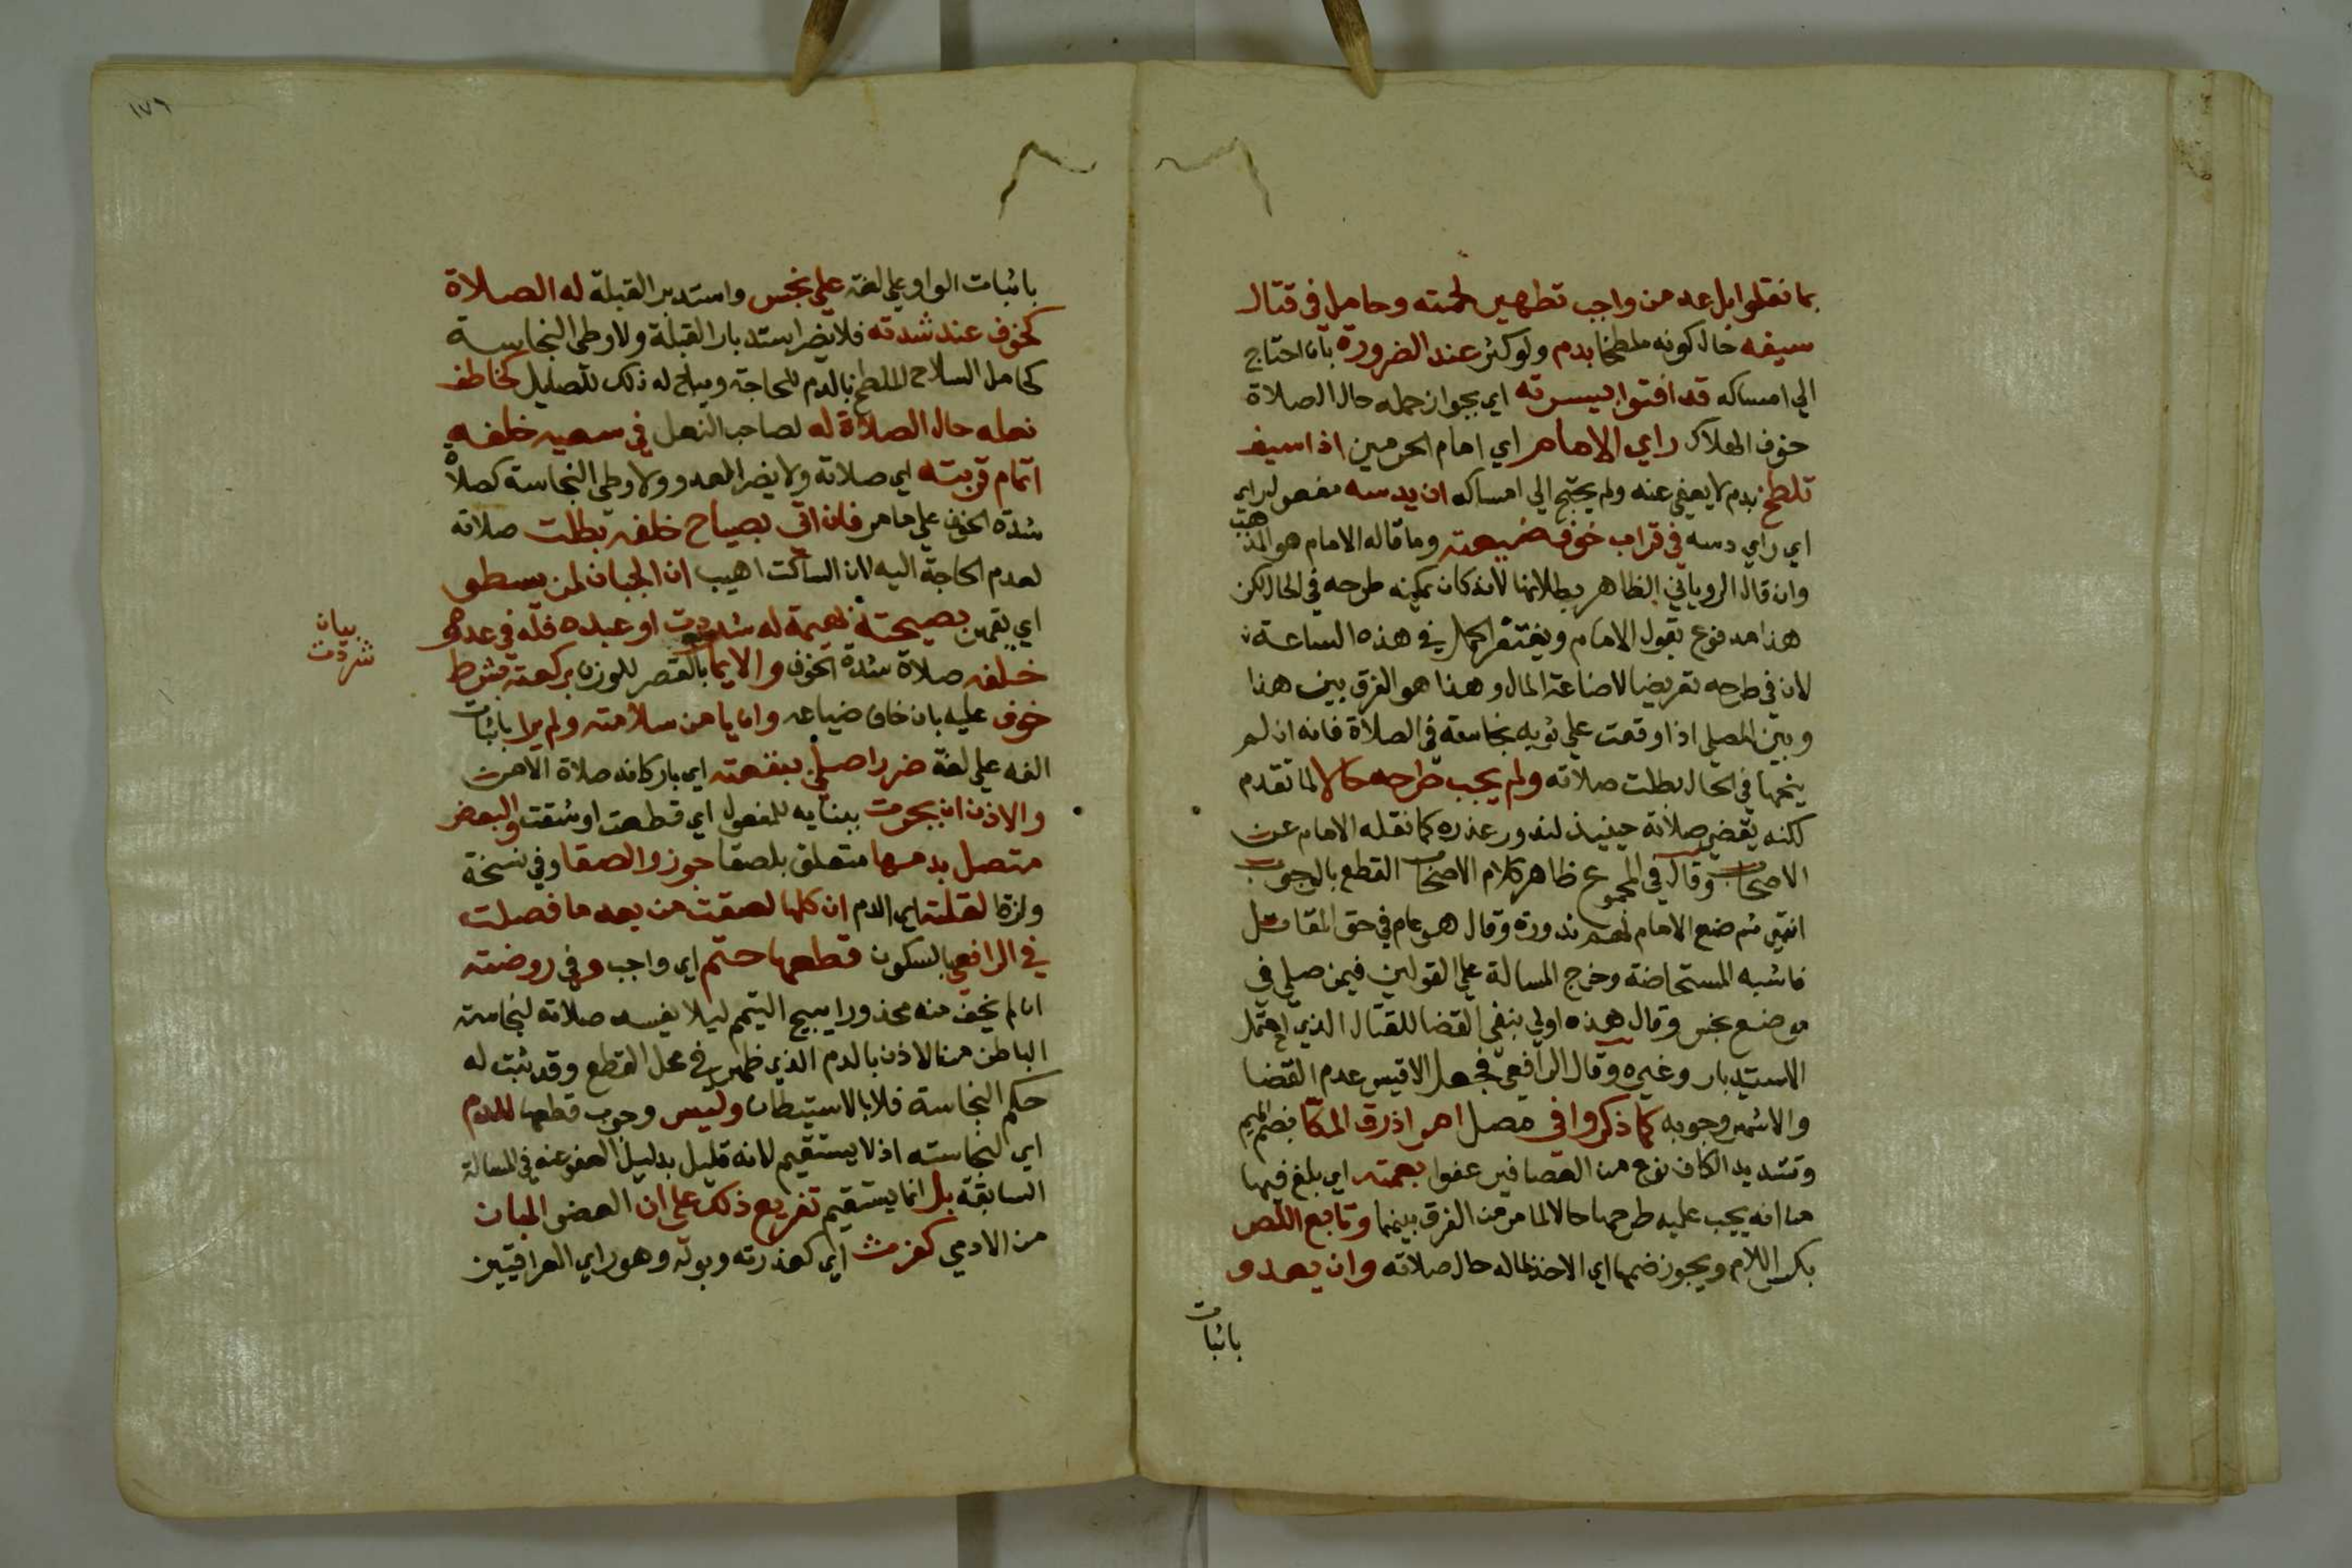 بما نقلوا بل عد من واجب تطهير لحمته وحامل في قتال
سيفه حال كونه ملطخا بدم ولو كثر عند الضرورة بان احتاج
الي امساكه قد افتوا بيسرته اي بجواز حمله حال الصلاة
خوف الهلاك راي الامام اي امام الحرمين اذا سيف
تلطخ بدم لا يعفي عنه ولم يحتج الي امساكه ان يدسه مفعول لراي
اي راي دسه في قراب خوف ضيعته وما قاله الامام هو المذهب
وان قال الروياني الظاهر بطلانها لانه كان يمكنه طرحه في الحال لكن
هذا مدفوع بقول الامام ويغتفر الحمل في هذه الساعة
لان في طرحه تعريضا لاضاعة المال وهذا هو الفرق بين هذا
وبين المصلي اذا وقعت علي ثوبه نجاسة في الصلاة فانه ان لم
ينحها في الحال بطلت صلاته ولم يجب طرحه حالا لما تقدم
لكنه يقضي صلاته حينيذ لندور عذره كما نقله الامام عن
الاصحاب وقال في المجموع ظاهر كلام الاصحاب القطع بالوجوب
انتهي ثم منع الامام لهم ندورة وقال هو عام في حق المقاتل
فاشبه المستحاضة وخرج المسالة علي القولين فيمن صلي في
موضع نجس وقال هذه اولي بنفي القضا للقتال الذي احتمل
الاستدبار وغيره وقال الرافعي فجعل الاقيس عدم القضا
والاشهر وجوبه كما ذكروا في مصل اهر اذرق المكا بضم الميم
وتشديد الكاف نوع من العصافير عفوا بعمته اي بلغ فيها
من انه يجب عليه طرحها حالا لما مر من الفرق بينهما وتابع اللص
بكسر اللام ويجوز ضمها اي الاخذ ماله حال صلاته وان يعدو
باثبات
١٧٦
باثبات الواو علي لغة علي نجس واستدبر القبلة له الصلاة
كخوف عند شدته فلا يضر استدبار القبلة ولا وطي النجاسة
كحامل السلاح الملطخ بالدم للحاجة ويباح له ذلك للصليل كخاطف
نعله حال الصلاة له لصاحب النعل في سعيه خلفه
اتمام قربته اي صلاته ولا يضر العدو ولا وطي النجاسة كصلاة
شدة الخوف علي ما مر فان اتي بصياح خلفه بطلت صلاته
لعدم الحاجة اليه لان الساكت اهيب ان الجبان لمن يسطو
اي يقهر بصيحة بهيمة له شردت او عبده فله في عدوه
بيان
شردت
خلفه صلاة شدة الخوف والايما بالقصر للوزن بركعته بشرط
خوف عليه بان خاف ضياعه وان يامن سلامته ولم يرا باثبات
الفه علي لغة ضررا صلي ببقعته اي باركانه صلاة الامن
والاذن ان يجرحت ببنايه للمفعول اي قطعت او شقت والبعض
متصل بدمها متعلق بلصقا جوزوا لصقا وفي نسخة
ولزقا لقلته اي الدم ان كلها لصقت من بعد ما فصلت
في الرافعي بالسكون قطعها حتم اي واجب وفي روضته
ان لم يخف منه محذورا يبيح التيمم ليلا يفسد صلاته لنجاسة
الباطن من الاذن بالدم الذي ظهر في محل القطع وقد ثبت له
حكم النجاسة فلا بالاستيطان وليس وجوب قطعها للدم
اي لنجاسته اذ لا يستقيم لانه قليل بدليل العفو عنه في المسالة
السابقة بل انما يستقيم تفريع ذلك علي ان العضو المبان
من الادمي كفرث اي كعذرته وبوله وهو راي العراقيين